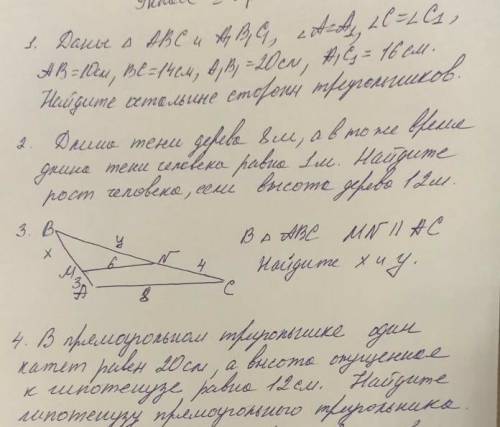 1. Даны △ ABC и A₁B₁C₁, ∠A=A₁, ∠C=∠C₁,
AB=10см, BC=14см, A₁B₁=20см, A₁C₁=16см.
Найдите остальные стороны треугольников.
2. Длина тени дерева 8м, а в то же время
длина тени человека равна 1м. Найдите
рост человека, если высота дерева 12м.
3. B
x
y
M
6
N
4
3
A
8
C
В △ ABC MN || AC
Найдите x и y.
4. В прямоугольном треугольнике один
катет равен 20см, а высота опущенная
к гипотенузе равна 12см. Найдите
гипотенузу прямоугольного треугольника.